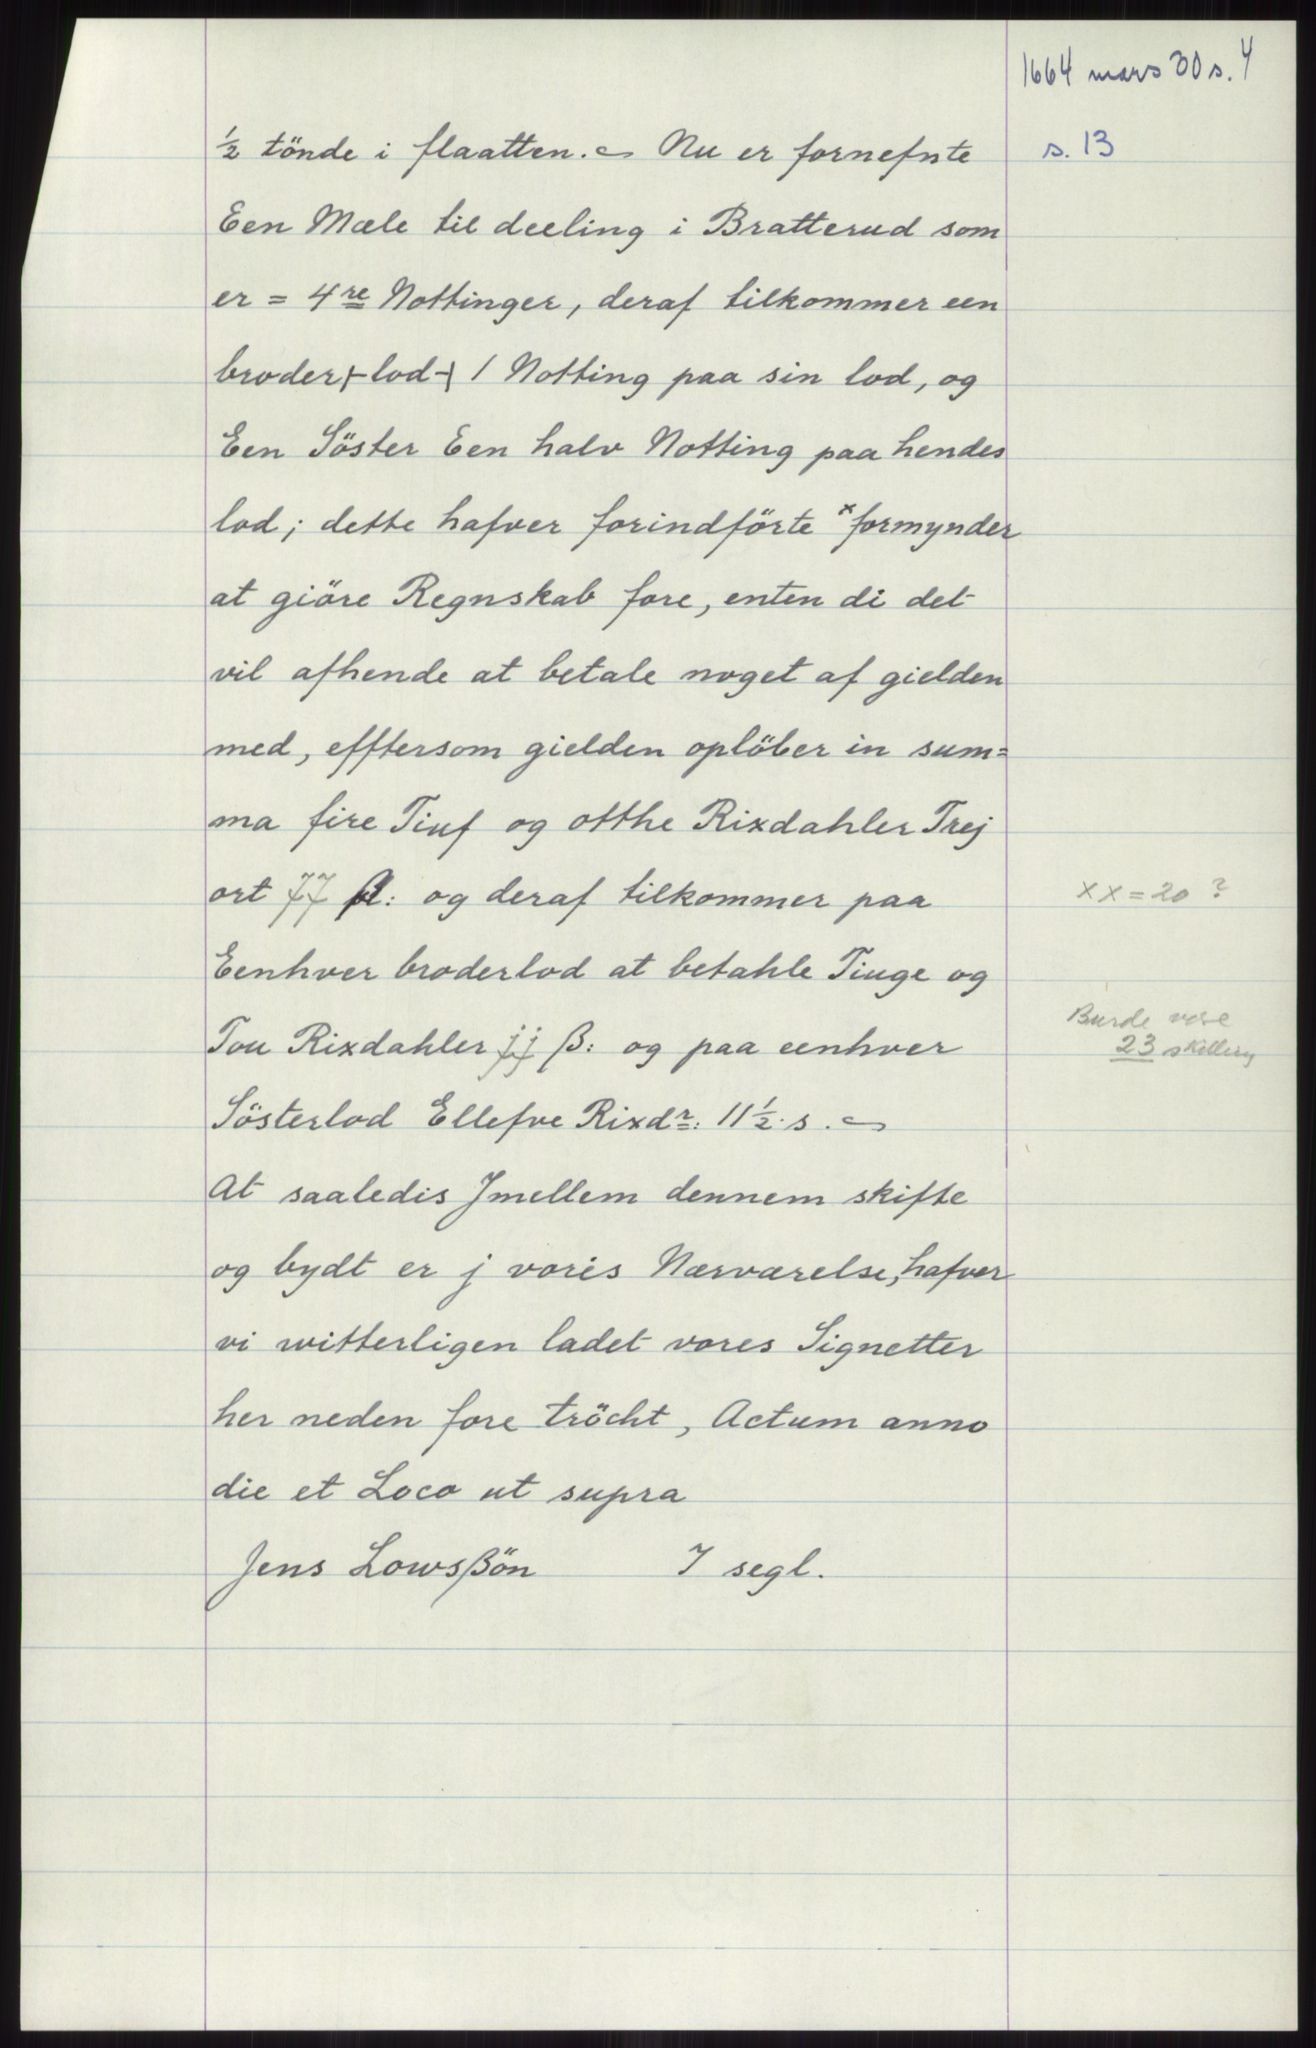 1664 mars 30 s. 4
s. 13
½ tönde i flaatten. Nu er fornefnte
Een Mæle til deeling i Bratterud som
er = 4re Nottinger, deraf tilkommer een
broder⊢lod⊣ 1 Notting paa sin lod, og
Een Söster Een halv Notting paa hendes
lod; dette hafver forindförte x formynder
at giöre Regnskab fore, enten di det
vil afhende at betale noget af gielden
med, efftersom gielden oplöber in sum=
ma fire Tiuf og otthe Rixdahler Trej
ort ß: og deraf tilkommer paa
xx = 20 ?
Eenhver broderlod at betahle Tiuge og
Tou Rixdahler jj ß: og paa eenhver
Burde vere
23 skilling
Sösterlod Ellefve Rixdr: 11½ s.
At saaledis Jmellem dennem skifte
og bydt er j voris Nærværelse, hafver
vi witterligen ladet vores Signetter
her neden fore tröcht, Actum anno
die et Loco ut supra
Jens Lowsßön 7 segl.